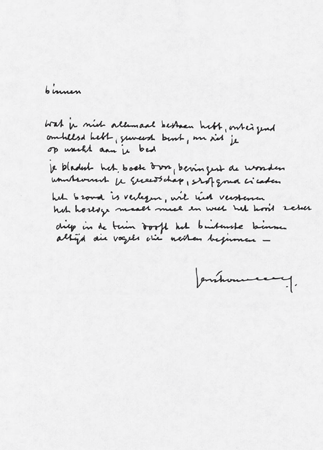 binnen
wat je niet allemaal bestaen hebt, onteigend
omhelsd hebt, geweest bent, nu zit je
op wacht aan je bed
je bladert het boek door, bevingert de wonden
je gereedschap, stofgoud cicaden
het brons is verlegen, wil niet verstenen
het horloge maalt meel en weet het nooit zeker
diep in de tuin dooft het buitenste binnen
altijd die vogels die nesten beginnen —